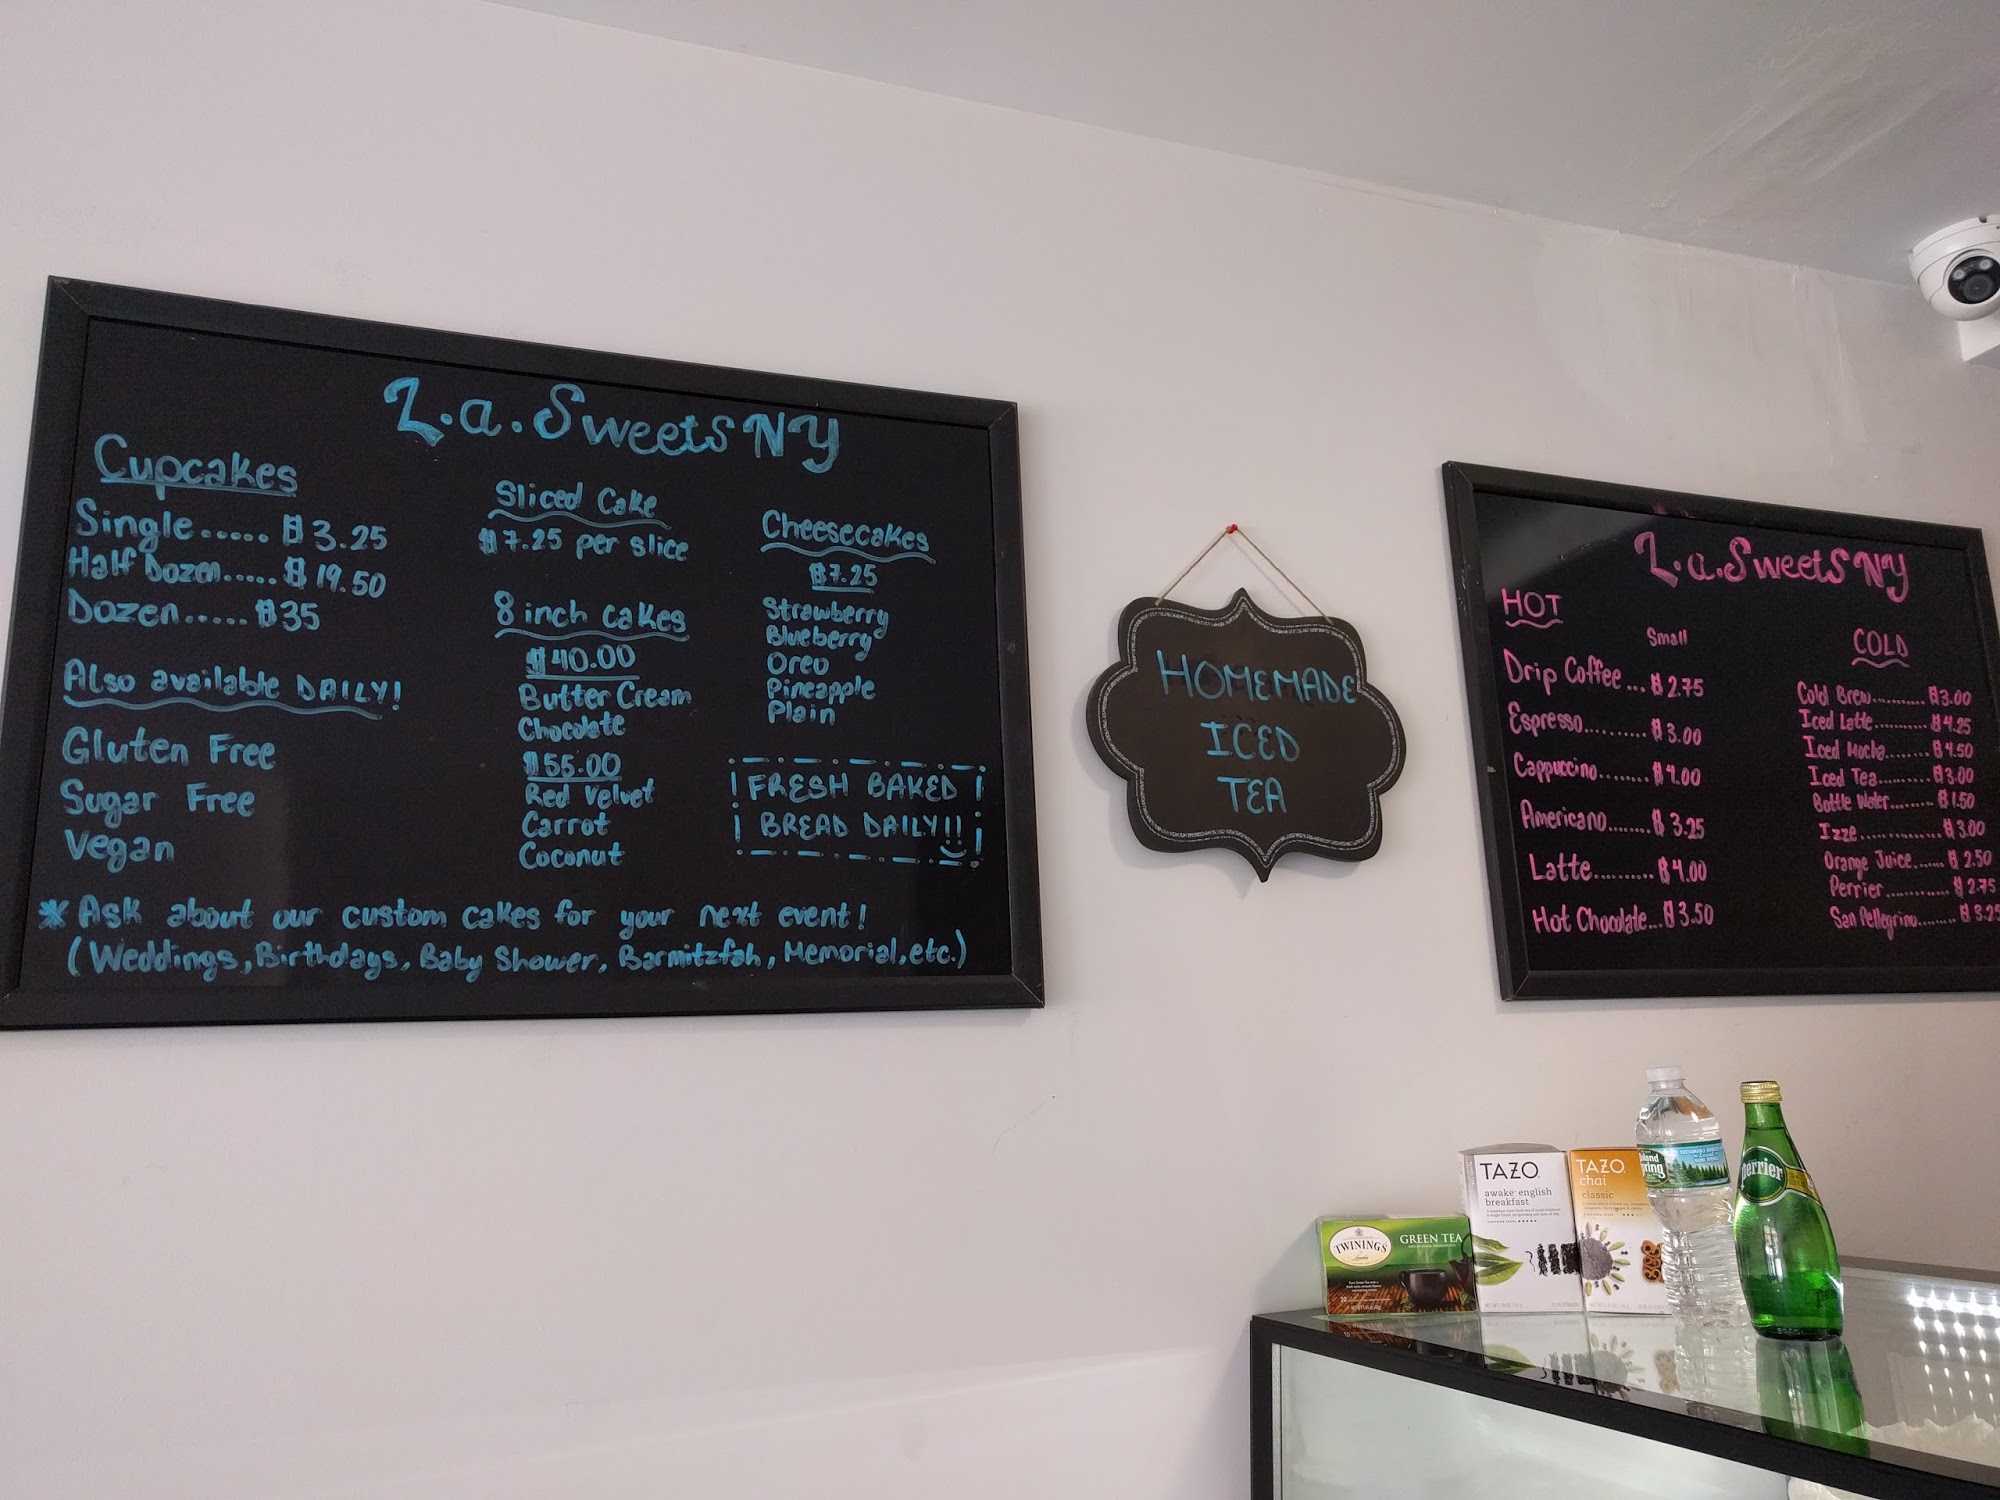 L.a. Sweets NY
Cupcakes
Single..... $3.25
Half Dozen..... $19.50
Dozen..... $35
Also available DAILY!
Gluten Free
Sugar Free
Vegan
Sliced Cake
$7.25 per slice
8 inch cakes
$40.00
Butter Cream
Chocolate
$55.00
Red Velvet
Carrot
Coconut
Cheesecakes
$7.25
Strawberry
Blueberry
Oreo
Pineapple
Plain
FRESH BAKED
BREAD DAILY!!
* Ask about our custom cakes for your next event!
(Weddings, Birthdays, Baby Shower, Barmitzfah, Memorial, etc.)
HOMEMADE
ICED
TEA
L.a. Sweets NY
HOT
Small
Drip Coffee... $2.75
Espresso.......... $3.00
Cappuccino........ $4.00
Americano........ $3.25
Latte.......... $4.00
Hot Chocolate... $3.50
COLD
Cold Brew........... $3.00
Iced Latte.......... $4.25
Iced Mocha........ $4.50
Iced Tea.......... $3.00
Bottle Water........ $1.50
Izze.............. $3.00
Orange Juice....... $2.50
Perrier............. $2.75
San Pellegrino........ $3.25
TWININGS
GREEN TEA
TAZO
awake english
breakfast
TAZO
chai
classic
Perrier